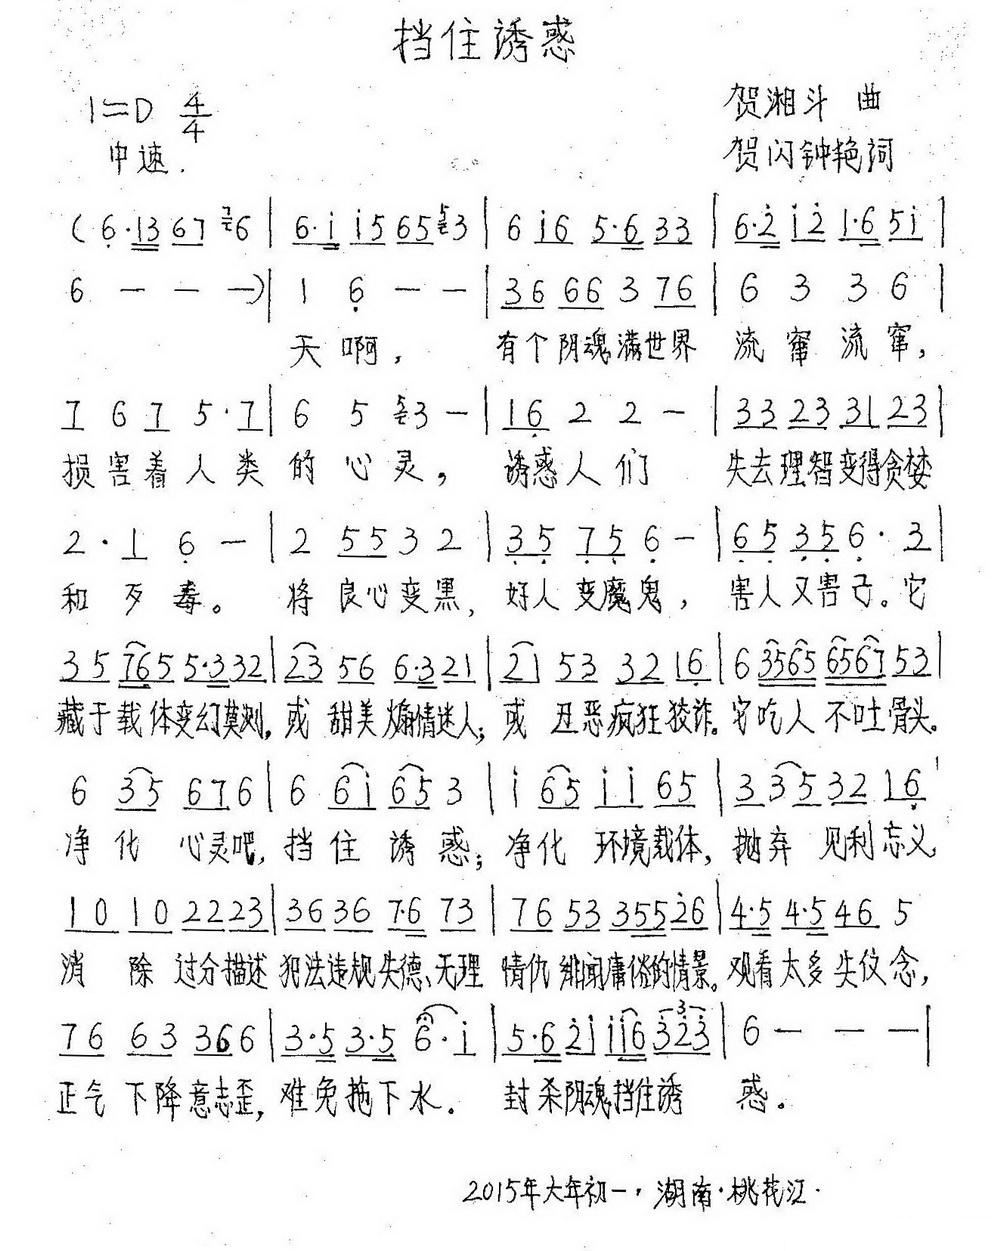 挡住诱惑
1=D 4/4
贺湘斗 曲
中速.
贺闪钟艳词
( 6·13 67 76 | 6·i i5 65 53 | 6 i6 5·6 33 | 6·2 i2 1·6 5i |
6 — — —)| 1 6 — — | 36 66 3 76 | 6 3 3 6 |
天啊, 有个阴魂满世界 流窜流窜,
7 6 7 5·7 | 6 5 53 — | 16 2 2 — | 33 23 31 23 |
损害着人类 的心灵。 诱惑人们 失去理智变得贪婪
2·1 6 — | 2 55 3 2 | 35 75 6 — | 65 35 6·3 |
和歹毒。 将良心变黑, 好人变魔鬼, 害人又害己。它
35 765 5·332 | 23 56 6·321 | 21 53 32 16 | 6 3565 6567 53 |
藏于载体变幻莫测, 或甜美煽情迷人; 或丑恶疯狂狡诈。它吃人不吐骨头。
6 35 676 | 6 6i 65 3 | i 65 ii 65 | 3 35 32 16 |
净化心灵吧, 挡住诱惑; 净化环境载体, 抛弃见利忘义
10 10 2223 | 3636 7·6 73 | 76 53 355 26 | 4·5 4·5 46 5
消除过分描述 犯法违规失德、无理情仇绯闻庸俗的情景。观看太多失仪念,
76 63 366 | 3·5 3·5 6·i | 5·6 2i ii6 323 | 6 — — — |
正气下降意志歪, 难免拖下水. 封杀阴魂挡住诱惑。
2015年大年初一,湖南·桃花江.